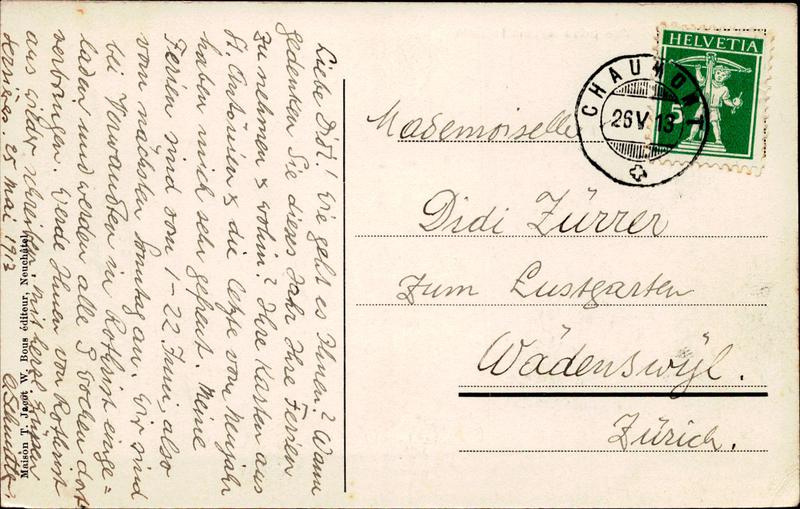 Liebe Didi! Wie geht es Ihnen? Wann
gedenken Sie dieses Jahr Ihre Ferien
zu nehmen & wohin? Ihre Karten aus
St. Antönien & die letzte vom Neujahr
haben mich sehr gefreut. Meine
Ferien sind vom 1-22 Juni, also
vom nächsten Sonntag an. Wir sind
bei Verwandten in Rothrist einge=
laden und werden alle 3 Wochen dort
verbringen. Werde Ihnen von Rothrist
aus wieder schreiben. Mit herzl. Grüssen
25 Mai 1913
Maison T. Jacot W. Bous éditeur, Neuchâtel
HELVETIA
5
CHAUMONT
26 V 13
Mademoiselle
Didi Zürrer
Zum Lustgarten
Wädenswyl.
Zürich.